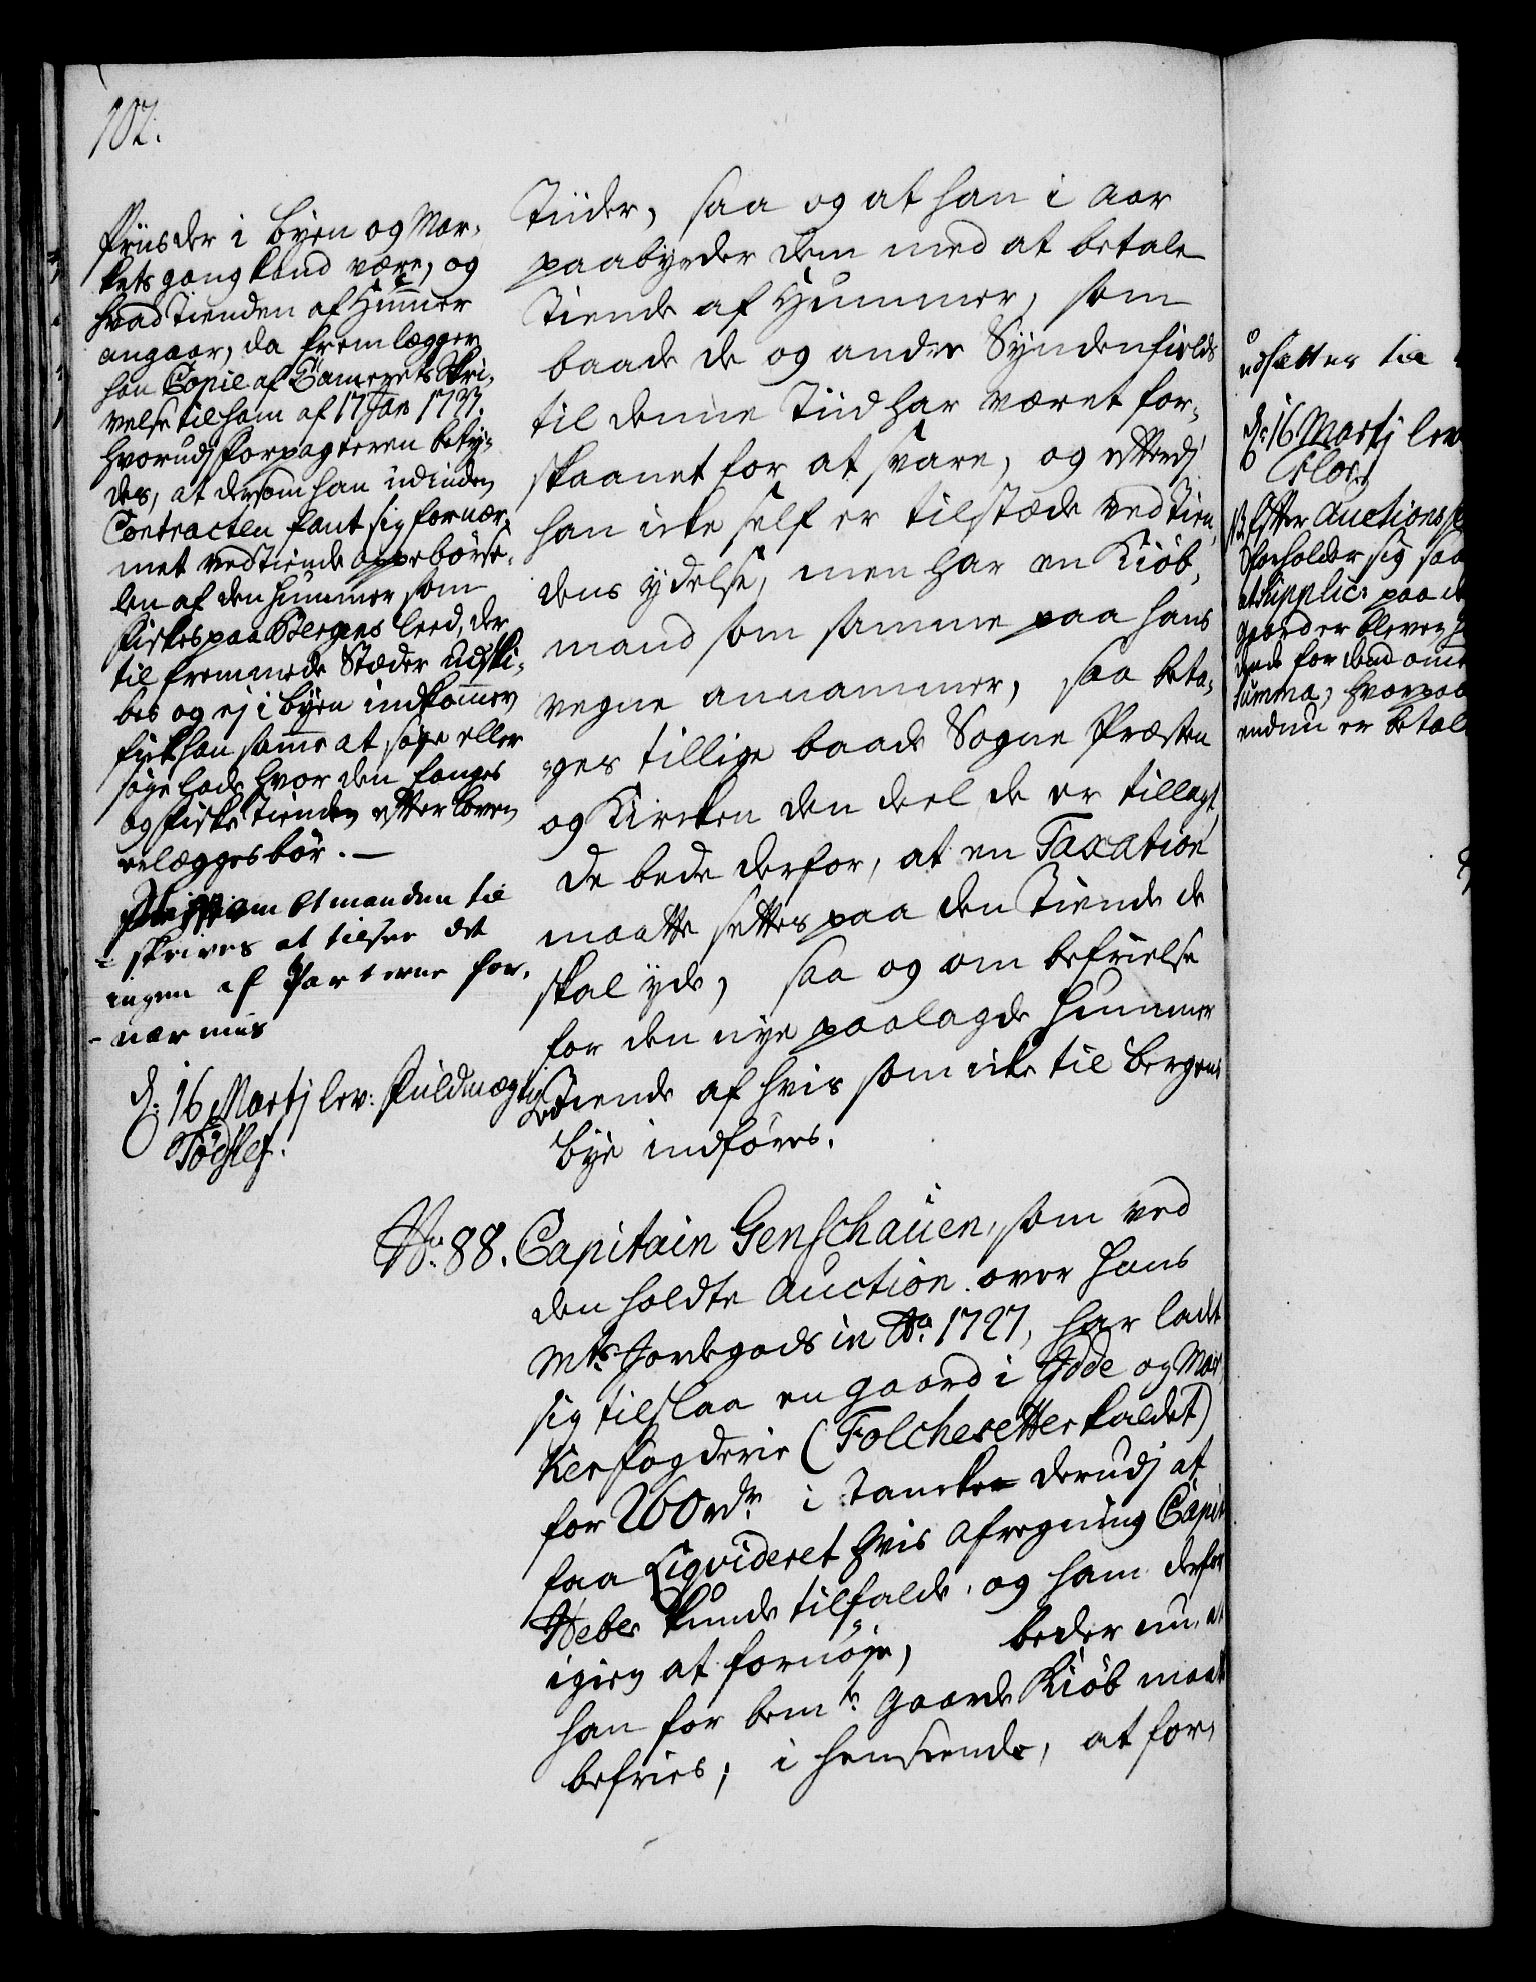 102.
Priis der i byen og Mar-
kets gang kand være, og
hvad Tienden af Hummer
angaar, da fremlegger
han Copie af Cameretskri-
velse til ham af 17 Jan 1727.
hvorudj Forpagteren bety-
des, at dersom han udinden
Contracten fant sig fornær-
met ved Tiende oppebørse-
len af den hummer som
fiskes paa Bergens leed, der
til fremmede Stæder udski-
bes og ej i byen indkommer
fik han samme at søge eller
søge lade hvor den fanges
og fiske Tienden efter loven
erlægges bør. —
Stiftamtmanden til
skrives at tilsee det
ingen af Parterne for-
nærmis
d. 16 Martj lev: Fuldmægtig
Tødslef.
Tiider, saa og at han i aar
paabyrder dem med at betale
Tiende af Hummer, som
baade de og andre Syndenfields
til denne Tiid har været for-
skaanet for at svare, og efterdj
han icke self er tilstæde ved Tien-
dens ydelse, men har en Kiøb-
mand som samme paa hans
vegne annammer, saa beta-
ges tillige baade Sogne Præsten
og Kircken den deel de er tillagt,
De bede derfor, at en Taxation
maatte settes paa den Tiende de
skal yde, saa og om befrielse
for den nye paalagde hummer
Tiende af hvis som icke til Bergens
bye indføres.
No. 88. Capitain Genschauen, som ved
den holdte Auction over hans
Mts. Jordegods in Ao. 1727, har ladt
sig tilslaa en gaard i Idde og Mar-
ker fogderie (Folchesetter kaldet)
for 260 rdr. i Tancke derudj at
faa Liqvideret hvis afregning Capit
Weber kunde tilfalde, og ham derfor
igien at fornøje, beder nu at
han for bemte. gaards Kiøb maat
befries, i henseende, at for-
udsetter til
d. 16 Martj lev
Flor.
Efter Auctions
forholder sig saa
at Supplic: paa
gaard er bleven
dende for dend
Summa, hvorpaa
endnu er betal